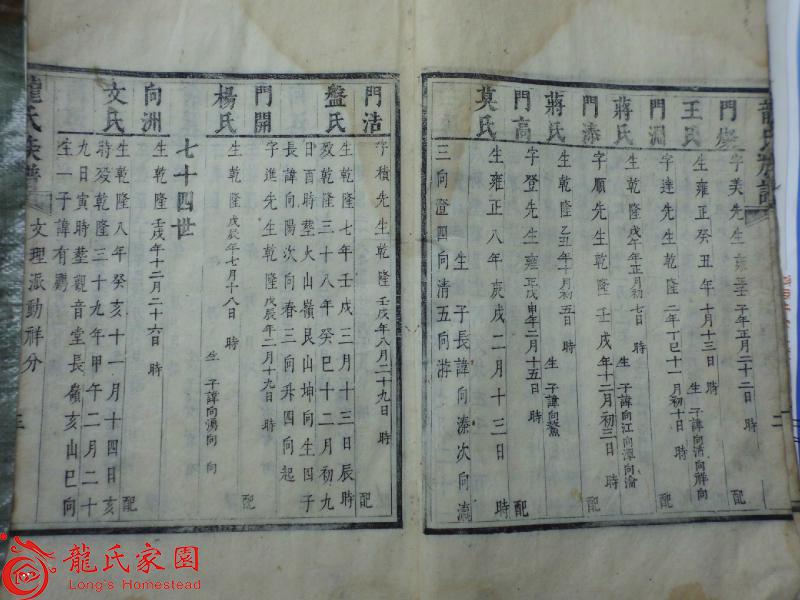 龍氏族譜
門 字美先生雍正壬子年正月二十二日 時 配
王氏 生雍正癸丑年十月十三日 時 生 子諱向浩向祥向
門淵 字達先生乾隆二年丁巳十一月初十日 時 配
蔣氏 生乾隆戊午年正月初七日 時 生 子諱向江向潭向淪
門添 字順先生乾隆壬戌年十二月初三日 時 配
蔣氏 生乾隆乙丑年十月初五日 時 生 子諱向鰲
門高 字登先生雍正戊申年二月十五日 時 配
莫氏 生雍正八年庚戌二月十三日 時
生 子長諱向溱次向瀛
三向澄四向清五向游
二
門沽 字積先生乾隆壬戌年八月二十九日 時 配
盤氏 生乾隆七年壬戌三月十三日辰時
歿乾隆三十八年癸巳十二月初九
日酉時塟火山嶺艮山坤向生四子
長諱向陽次向春三向升四向起
門開 字進先生乾隆戊辰年二月十九日 時 配
楊氏 生乾隆戊辰年七月十八日 時 生 子諱向鴻向 向
七十四世
向洲 生乾隆壬戌年十二月二十六日 時 配
文氏 生乾隆八年癸亥十一月十四日亥
時歿乾隆三十九年甲午二月二十
九日寅時塟觀音堂長嶺亥山巳向
生一子諱有
龍氏族譜 文理派動祥分 三
龍氏家園
Long's Homestead